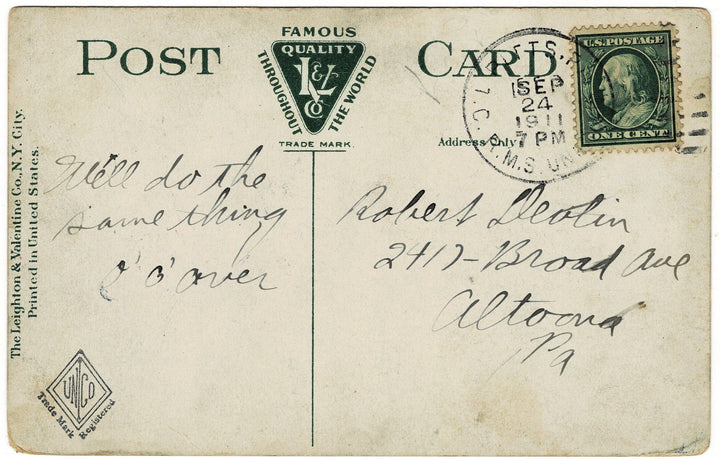 POST CARD
FAMOUS
QUALITY
L&V
Co
THROUGHOUT THE WORLD
TRADE MARK.
Address Only
SEP
24
1911
7 PM
R.M.S.
U.S. POSTAGE
ONE CENT
We'll do the
same thing
over
Robert Devlin
2417-Broad Ave
Altoona
Pa
The Leighton & Valentine Co., N.Y. City.
Printed in United States.
UNCO
Trade Mark Registered